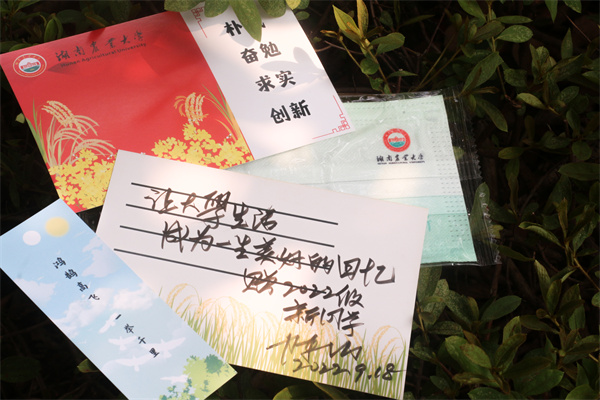 湖南农业大学
Hunan Agricultural University
朴诚
奋勉
求实
创新
湖南农业大学
HUNAN AGRICULTURAL UNIVERSITY
让大學生活
成为一生美好的回忆
赠2022级
新同学
2022.9.18
鸿鹄高飞
一举千里